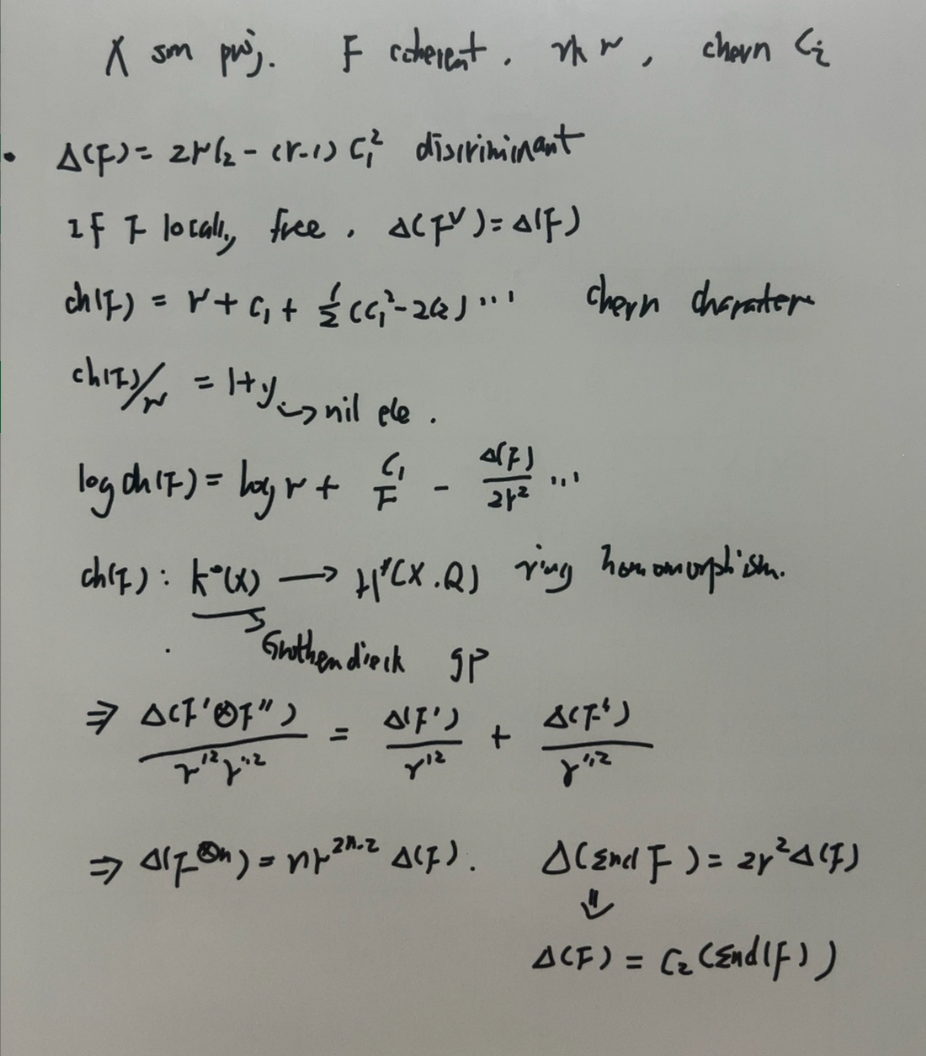 X sm proj. F coherent. rk r, chern Ci
• Δ(F) = 2rC2 - (r-1) C1² discriminant
If F locally free. Δ(F^∨) = Δ(F)
ch(F) = r + C1 + 1/2 (C1² - 2C2) ... chern charater
ch(F)/r = 1+y ↪ nil ele.
log ch(F) = log r + C1/F - Δ(F)/2r² ...
ch(F): K°(X) → H*(X.Q) ring homomorphism.
Grothendieck gp
⇒ Δ(F'⊗F'')/r'²r''² = Δ(F')/r'² + Δ(F')/r''²
⇒ Δ(F^⊗n) = nr^{2n-2} Δ(F). Δ(End F) = 2r²Δ(F)
⇓
Δ(F) = C2(End(F))